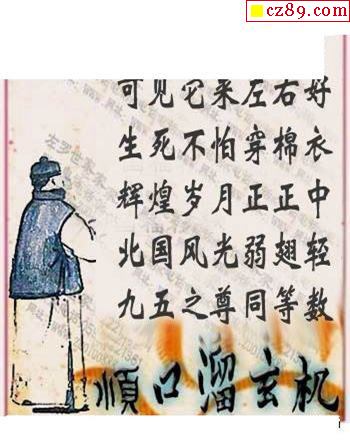 cz89.com
可见它来左右好
生死不怕穿棉衣
辉煌岁月正正中
北国风光弱翅轻
九五之尊同等数
順口溜玄机